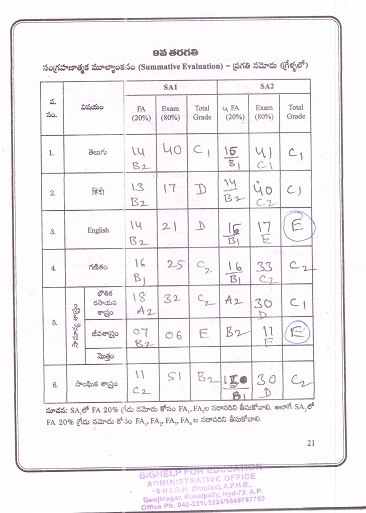 9వ తరగతి
సంగ్రహణాత్మక మూల్యాంకనం (Summative Evaluation) – ప్రగతి నమోదు (గ్రేళ్ళలో)
వ. సం. విషయం SA1 SA2
FA (20%) Exam (80%) Total Grade FA (20%) Exam (80%) Total Grade
1. తెలుగు 14 B2 40 C1 15 B1 41 C1 C1
2. हिंदी 13 B2 17 D 14 B2 40 C2 C1
3. English 14 B2 21 D 15 B1 17 E E
4. గణితం 16 B1 25 C2 16 B1 33 C2 C2
5. సామాన్య శాస్త్రం
భౌతిక రసాయన శాస్త్రం 18 A2 32 C2 A2 30 D C1
జీవశాస్త్రం 07 B2 06 E B2 11 E E
మొత్తం
6. సాంఘిక శాస్త్రం 11 C2 51 B2 B1 30 D C2
సూచన: SA1లో FA 20% గ్రేడు నమోదు కోసం FA1, FA2ల సరాసరిని తీసుకోవాలి. అలాగే SA2లో
FA 20% గ్రేడు నమోదు కోసం FA1, FA2, FA3, FA4 ల సరాసరిని తీసుకోవాలి.
21
BIGHELP FOR EDUCATION
ADMINISTRATIVE OFFICE
H.I.G.H. (Duplex) A.P.H.B.,
Baghnagar, Kukatpally, Hyd-72. A.P.
Office Ph: 040-231